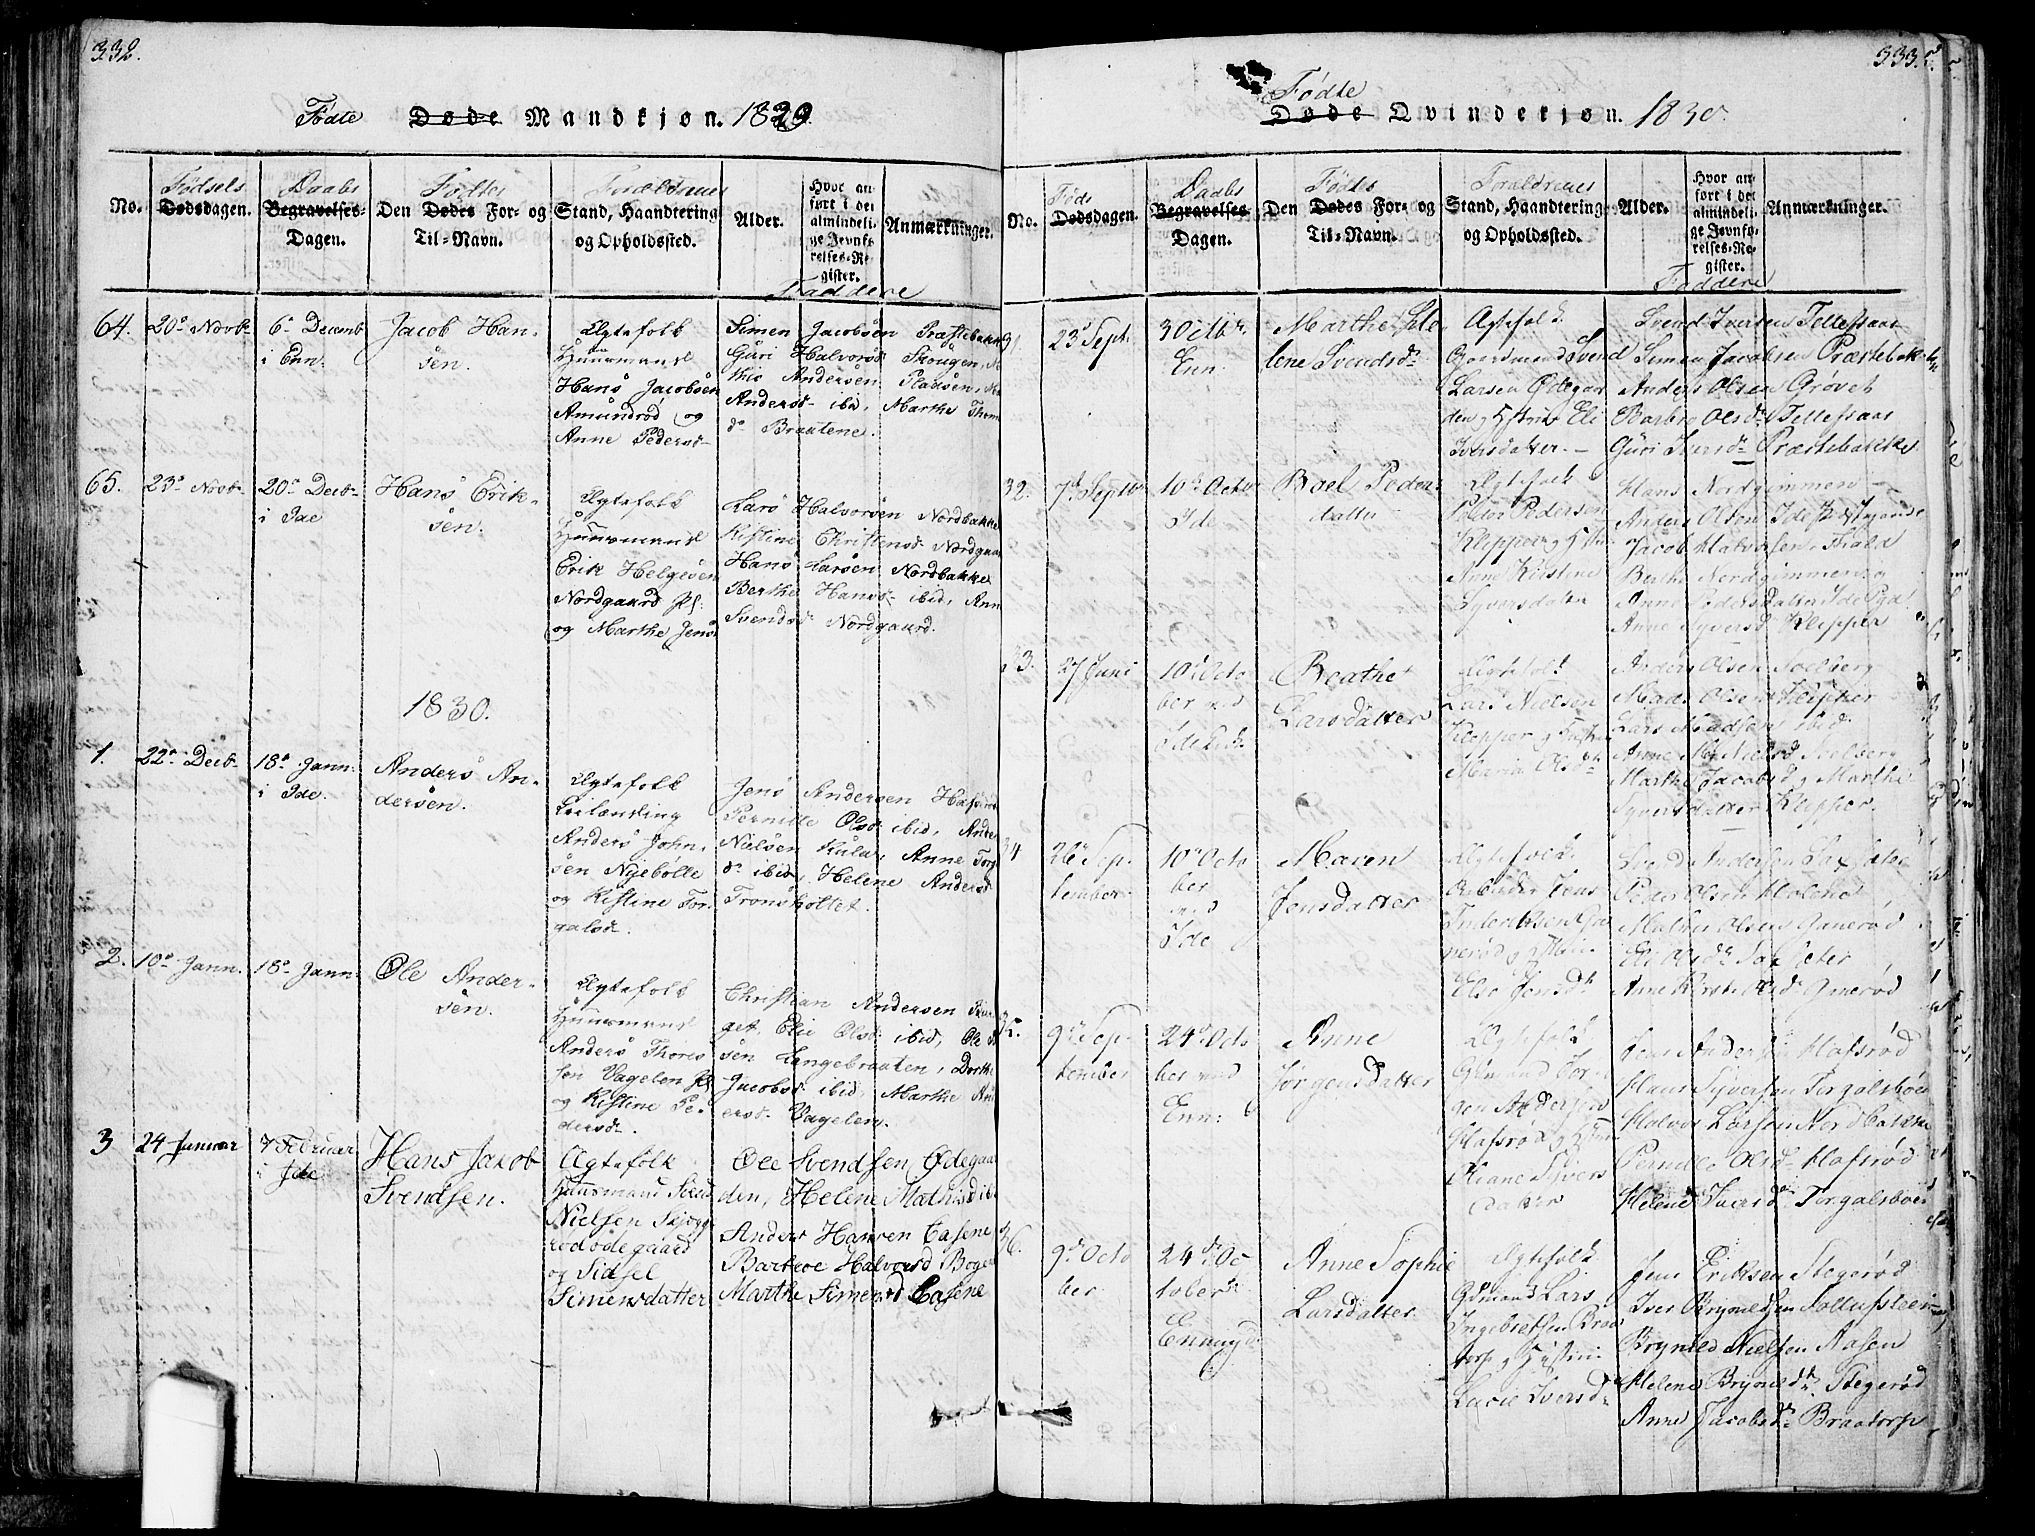 332.
Fødte Døde Mandkjøn. 1829.
No.
Fødsels
Dødsdagen.
Daabs
Begravelses-
Dagen.
Fødtes
Den Dødes For- og
Til-Navn.
Forældrenes
Stand, Haandtering
og Opholdssted.
Alder.
Hvor an-
ført i det
almindeli-
ge Jevnfø-
relses-Re-
gister.
Anmærkninger.
Faddere
64.
20de Novb.
6te Decemb
i Enn.
Jacob Han-
sen.
Ægtefolk
Huusmand
Hans Jacobsen
Amundrød og
Anne Pedersd.
Simen Jacobsen Præstebakke
Guri Halvorsd. Skougen,
Andersen Pladsen,
Andersd. ibid, Marthe Thom
d. Braatene.
65.
23de Novb.
20de Decb.
i Ide
Hans Erik-
sen.
Ægtefolk
Huusmand
Erik Helgesen
Nordgaard Pl.
og Marthe Jensd
Lars Halvorsen Nordbakke
Kistine Christensd. Nordgaar
Hans Larsen Nordbakke
Berthe Hansd. ibid, Ann
Svendsd Nordgaard.
1830.
1.
22de Decb.
18de Jann.
i Ide.
Anders An-
dersen.
Ægtefolk
Leilænding
Anders John-
sen Nyebølle
og Kistine Tor-
galsd.
Jens Andersen Hafsrød
Pernille Olsd. ibid, Ande
Nielsen Kula, Anne Torg
d. ibid, Helene Andersd
Tronsholtet.
2.
10de Jann.
18de Jann.
Ole Ander-
sen.
Ægtefolk
Huusmand
Anders Thores
sen Vagelen Pl
og Kistine Pe-
dersd.
Christian Andersen
get, Elie Olsd. ibid, Ole
sen Langebraaten, Dorthe
Jacobsd. ibid, Marthe An
ersd. Vagelen.
3
24 Januar
7 Februar
i Ide
Hans Jakob
Svendsen.
Ægtefolk
Huusmand Svend
Nielsen Skjøgge
rødødegaard
og Sidsel
Simensdatter
Ole Svendsen Ødegaa
den, Helene Mathisd ib
Anders Hansen Casene
Barbroe Halvorsd Bøgen
Marthe Simensd Casene
333.
Fødte
Døde Qvindekjøn. 1830.
No.
Føds
Dødsdagen.
Daabs
Begravelses
Dagen.
Fødtes
Den Dødes For- og
Til-Navn.
Forældrenes
Stand, Haandtering
og Opholdssted.
Alder.
Hvor an-
ført i det
almindeli-
ge Jevnfø-
relses-Re-
gister.
Anmærkninger.
Faddere
31
23de Sept.
3 Octbr.
Enn.
Marthe He-
lene Svendsdr.
Ægtefolk
Gaardmand Svend
Larsen Ødegaar
den og Hustrue Eli
Iversdatter.
Svend Iversen Tellefsaas
Simen Jacobsen Præstebak-
Anders Olsen Grøvet
Barbro Olsdr. Tellefsaas
Guri Iversdr. Præstebakke
32.
7de Septbr
10de Octbr
Ide
Boel Peder-
datter
Ægtefolk
Peder Pedersen
Klepper og Hstr.
Anne Kirstine
Syversdatter
Hans Nordgimmen
Anders Olsen Ide
Jacob Halvorsen
Berthe Nordgimmen og
Anne Pedersdatter Ide Pga.
Anne Syversd Klepper
33.
27 Juni
10de Octo
ber ved
Ide Kirk.
Beathe
Larsdatter
Ægtefolk
Lars Nielsen
Klepper og Hustr.
Maria Olsdtr
Anders Olsen Solberg
Mads Olsen Klepper
Lars Madsen ibid.
Anne Nielsd Solberg
Marthe Jacobsd og Marthe
Syversdatter Klepper.
34
26de Sep-
tember
10de Octo
ber
ved
Ide
Maren
Jensdatter
Ægtefolk.
Arbeider Jens
Frederiksen
nerød og Hstr.
Else Jensdtr
Svend Andersen Saxsæter
Peder Olsen Holene
Halvor Olsen Gunerød
Eli Olsdr. Saxsæter
Anne Kirst. Olsd. Gunerød
35.
9de Sep-
tember
24de Octo
ber ved
Enn:
Anne
Jørgensdatter
Ægtefolk
Gmand Jør-
gen Andersen
Hafsrød og Hstr.
Oliane Syvers
datter
Jens Andersen Hafsrød
Hans Syversen Torgalsbøe
Halvor Larsen Nordbakke
Pernille Olsd. Hafsrød
Helene Iversd. Torgalsbøe
36.
9de Octo
ber
24de Oc
tober
Enningd.
Anne Sophie
Larsdatter
Ægtefolk
Gdmand Lars
Ingebretsen Braa
torp og Hustrue
Lucie Iversdr
Jens Eriksen Stegerød
Iver Brynildsen
Brynild Nielsen Aasen
Helene Brynildsdr. Stegerød
Anne Jacobsdr. Braatorp